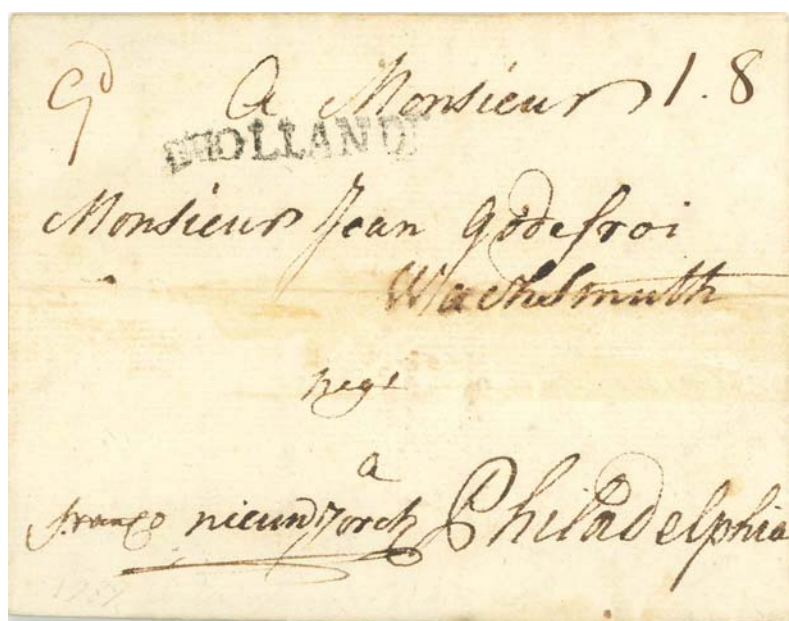 A Monsieur 1.8
D'HOLLANDE
Monsieur Jean Godefroi
Wachsmuth
Negt
a
franco nieund Jorck Philadelphia